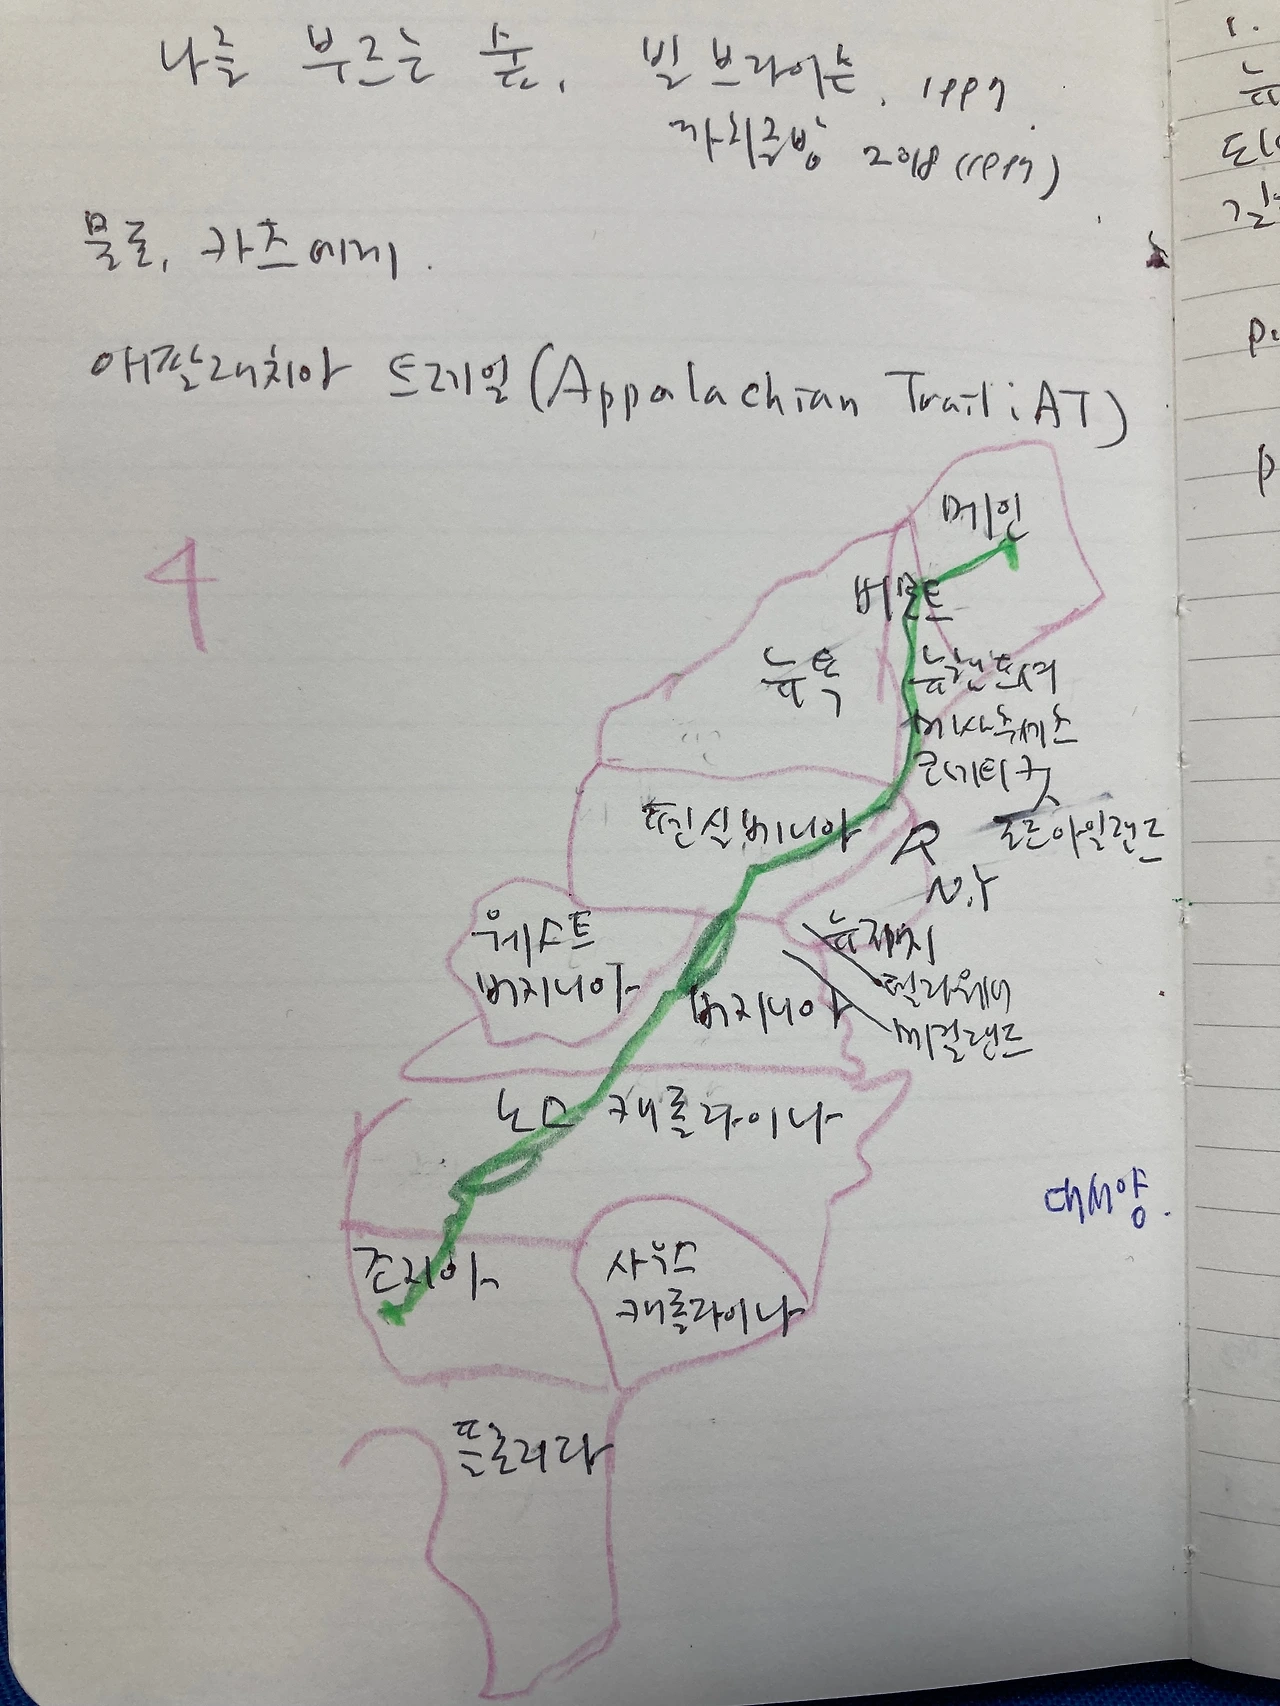 나를 부르는 숲, 빌 브라이슨, 1997.
까치글방 2018 (1997)
물론, 카츠에게.
애팔래치아 트레일 (Appalachian Trail: AT)
메인
버몬트
뉴욕
뉴햄프셔
메사추세츠
코네티컷
펜실베니아
로드아일랜드
N.Y
웨스트
버지니아
뉴저지
델라웨어
버지니아
메릴랜드
노스 캐롤라이나
대서양.
조지아
사우스
캐롤라이나
플로리다
1.
뉴